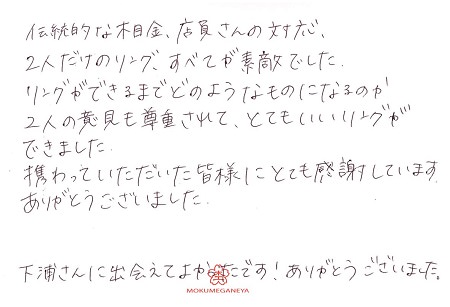 伝統的な木目金、店員さんの対応、
2人だけのリング、すべてが素敵でした.
リングができるまでどのようなものになるのか
2人の意見も尊重されて、とてもいいリングが
できました.
携わっていただいた皆様にとても感謝しています
ありがとうございました.
下浦さんに出会えてよかったです！ありがとうございました。
MOKUMEGANEYA